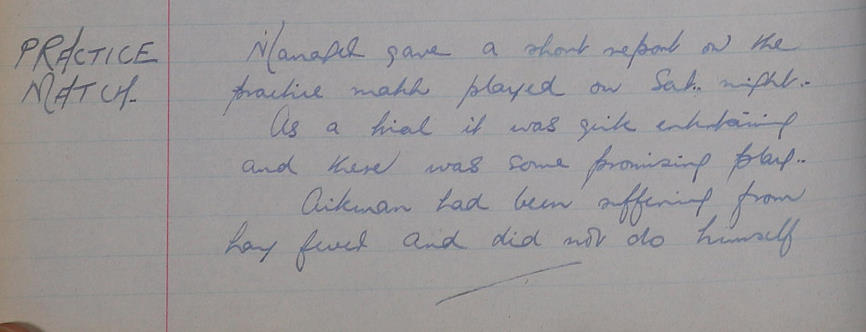 PRACTICE
MATCH.
Manager gave a short report on the
practice match played on Sat. night.
As a trial it was quite entertaining
and there was some promising play.
Aikman had been suffering from
hay fever and did not do himself